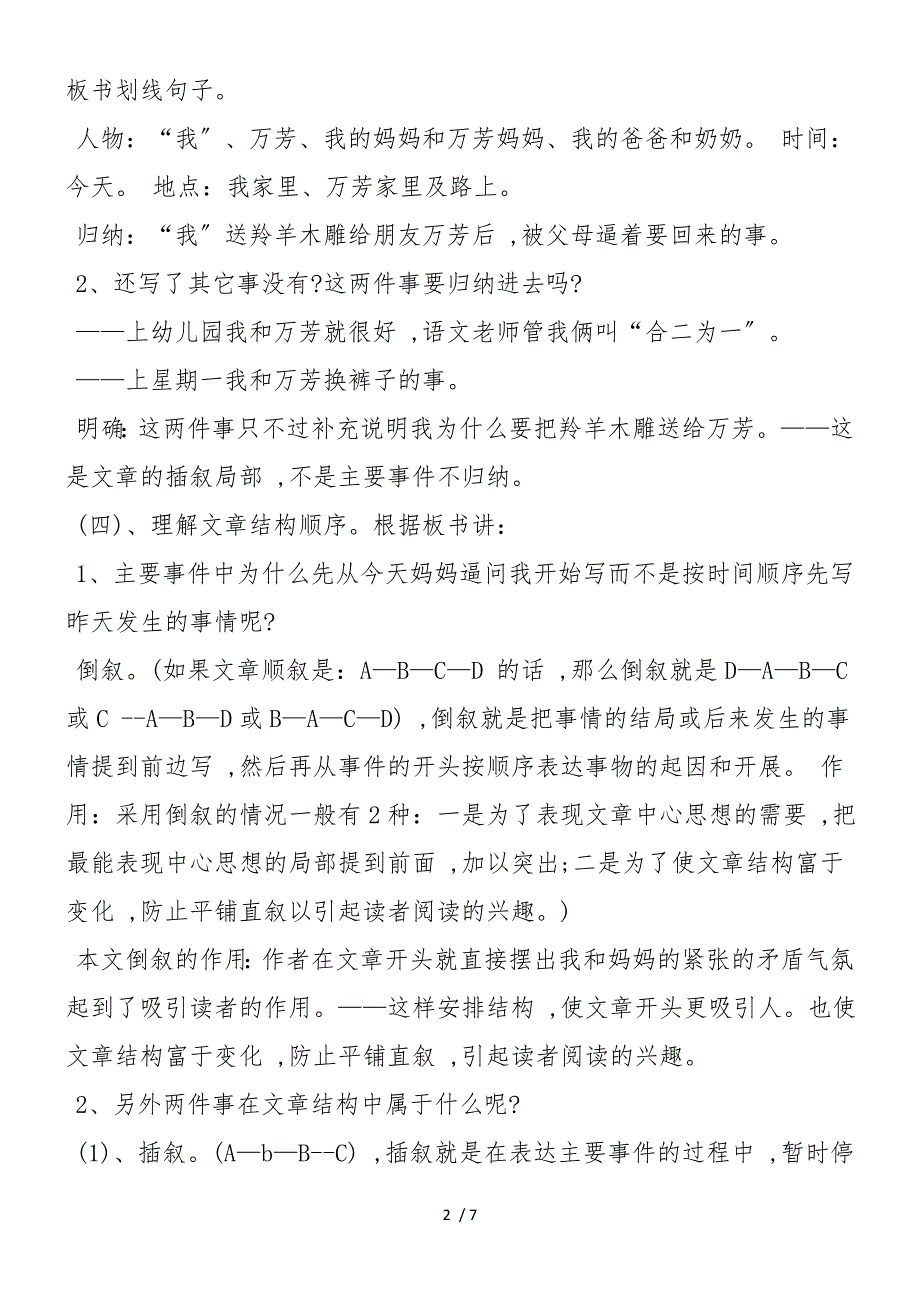 板书划线句子。
人物：“我〞、万芳、我的妈妈和万芳妈妈、我的爸爸和奶奶。 时间：
今天。 地点：我家里、万芳家里及路上。
归纳：“我〞送羚羊木雕给朋友万芳后 ,被父母逼着要回来的事。
2、还写了其它事没有?这两件事要归纳进去吗?
——上幼儿园我和万芳就很好 ,语文老师管我俩叫“合二为一〞。
——上星期一我和万芳换裤子的事。
明确：这两件事只不过补充说明我为什么要把羚羊木雕送给万芳。——这
是文章的插叙局部 ,不是主要事件不归纳。
(四)、理解文章结构顺序。根据板书讲：
1、主要事件中为什么先从今天妈妈逼问我开始写而不是按时间顺序先写
昨天发生的事情呢?
倒叙。(如果文章顺叙是：A—B—C—D 的话 ,那么倒叙就是D—A—B—C
或C --A—B—D或B—A—C—D) ,倒叙就是把事情的结局或后来发生的事
情提到前边写 ,然后再从事件的开头按顺序表达事物的起因和开展。 作
用：采用倒叙的情况一般有2种：一是为了表现文章中心思想的需要 ,把
最能表现中心思想的局部提到前面 ,加以突出;二是为了使文章结构富于
变化 ,防止平铺直叙以引起读者阅读的兴趣。)
本文倒叙的作用：作者在文章开头就直接摆出我和妈妈的紧张的矛盾气氛
起到了吸引读者的作用。——这样安排结构 ,使文章开头更吸引人。也使
文章结构富于变化 ,防止平铺直叙 ,引起读者阅读的兴趣。
2、另外两件事在文章结构中属于什么呢?
(1)、插叙。(A—b—B--C) ,插叙就是在表达主要事件的过程中 ,暂时停
2 / 7